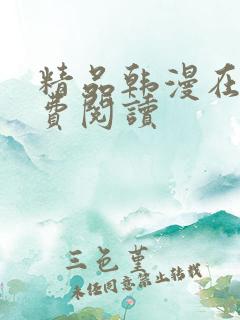 精品韩漫在
費閱讀
三色堇
未经同意禁止转载